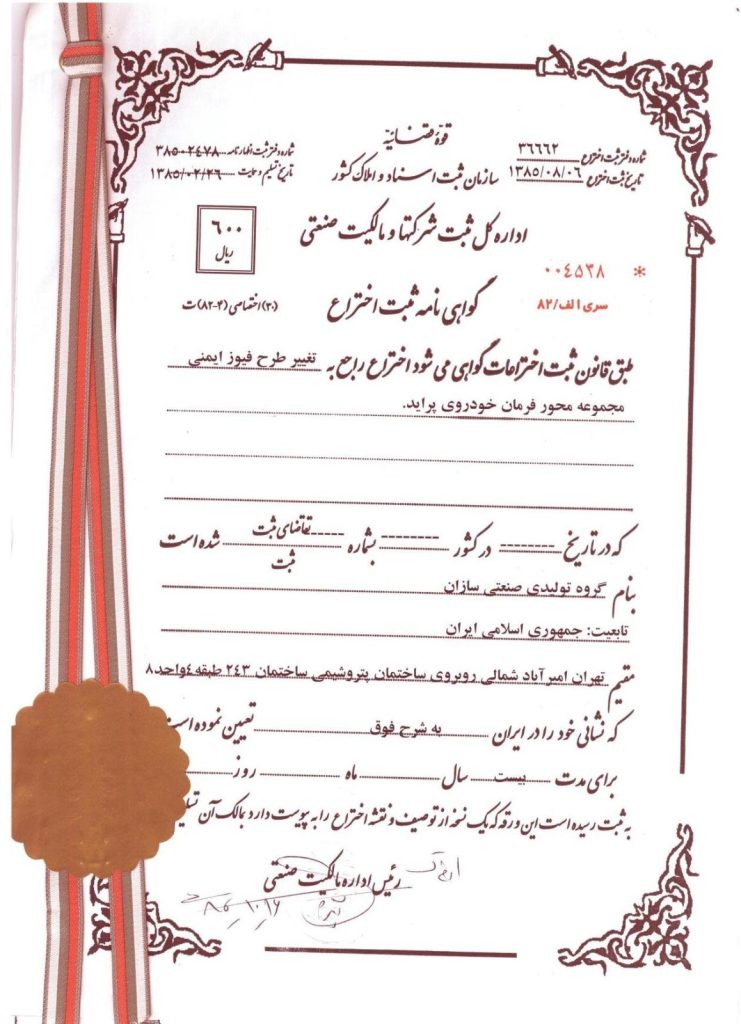 قوۀ قضائیه
شماره دفتر ثبت اختراع ۳۶۶۶۲
شماره دفتر ثبت اظهارنامه ۳۸۵۰۲۴۷۸
سازمان ثبت اسناد و املاک کشور
تاریخ ثبت اختراع ۱۳۸۵/۰۸/۰۶
تاریخ تسلیم و ساعت ۱۳۸۵/۰۲/۲۶
اداره کل ثبت شرکتها و مالکیت صنعتی
۶۰۰
ریال
* ۰۰۴۵۳۸
سری الف/۸۲
گواهی نامه ثبت اختراع
(۳۰) اختصاصی (۴-۸۲) ت
طبق قانون ثبت اختراعات گواهی می شود اختراع راجع به تغییر طرح فیوز ایمنی
مجموعه محور فرمان خودروی پراید.
که در تاریخ -------- در کشور --------- بشماره ----- تقاضای ثبت شده است
ثبت
بنام گروه تولیدی صنعتی سازان
تابعیت: جمهوری اسلامی ایران
مقیم تهران امیرآباد شمالی روبروی ساختمان پتروشیمی ساختمان ۲۴۳ طبقه ۴ واحد ۸
که نشانی خود را در ایران به شرح فوق تعیین نموده است
برای مدت بیست سال ماه روز
به ثبت رسیده است این ورقه که یک نسخه از توصیف و نقشه اختراع را به پیوست دارد بمالک آن
رئیس اداره مالکیت صنعتی